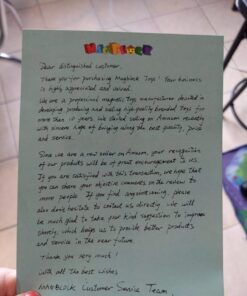 MNABLOCK
Dear distinguished customer,
Thank you for purchasing Magblock Toys! Your business
is highly appreciated and valued.
We are a professional magnetic toys manufacturer devoted in
developing, producing and selling high-quality branded toys for
more than 10 years. We started selling on Amazon recently
with sincere hope of bringing along the best quality, price
and service.
Since we are a new seller on Amazon, your recognition
of our products will be of great encouragement to us.
If you are satisfied with this transaction, we hope that
you can share your objective comments on the review to
more people. If you find anything unsatisfying, please
also don't hesitate to contact us directly. We will
be much glad to take your kind suggestion to improve
shortly, which helps us to provide better products
and service in the near future.
Thank you very much!
With all the best wishes
MNABLOCK Customer Service Team